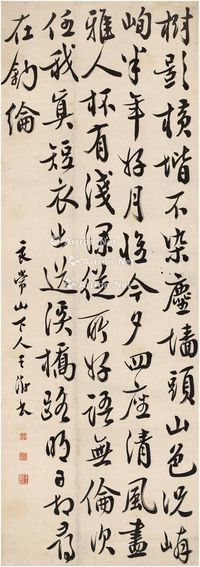 樹影橫堦不染塵牆頭山色況嶙
峋半年好月臨今夕四座清風盡
雅人杯有淺深從所好語無倫次
任我真短衣出送溪橋路明日相尋
在釣綸
良常山下人王澍書